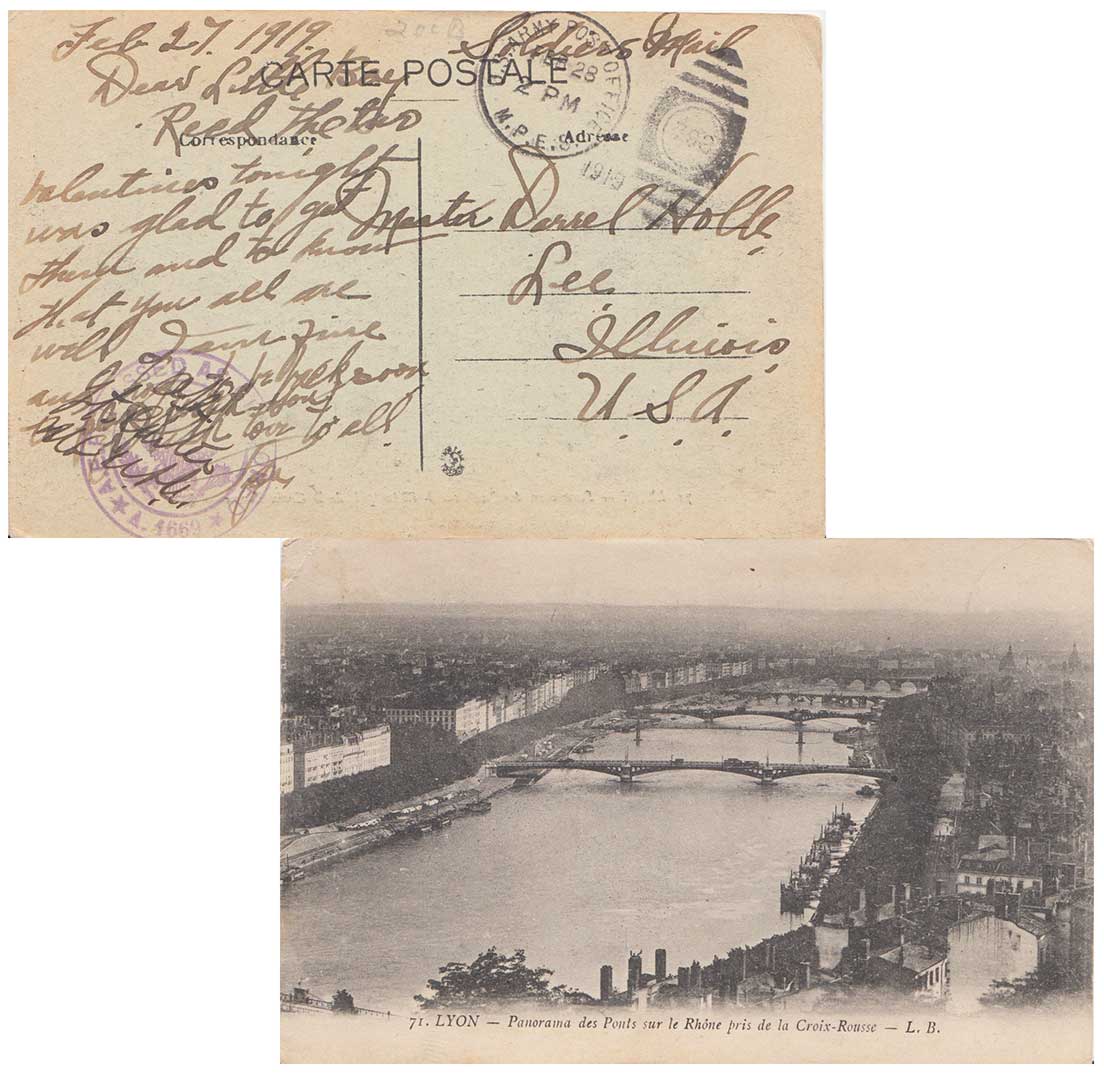 Feb 27, 1919.
200B
Soldiers Mail
CARTE POSTALE
Dear Little
Recd the two
Correspondance
Adresse
U.S. ARMY POST OFFICE
FEB 28
2 PM
M.P.E.S.
1919
valentines tonight
was glad to get
them and to know
that you all are
well I am fine
and hope to be back soon
love to all
Master Darrel Kolb
Lee
Illinois
U.S.A.
A.
71. LYON — Panorama des Ponts sur le Rhône pris de la Croix-Rousse — L. B.